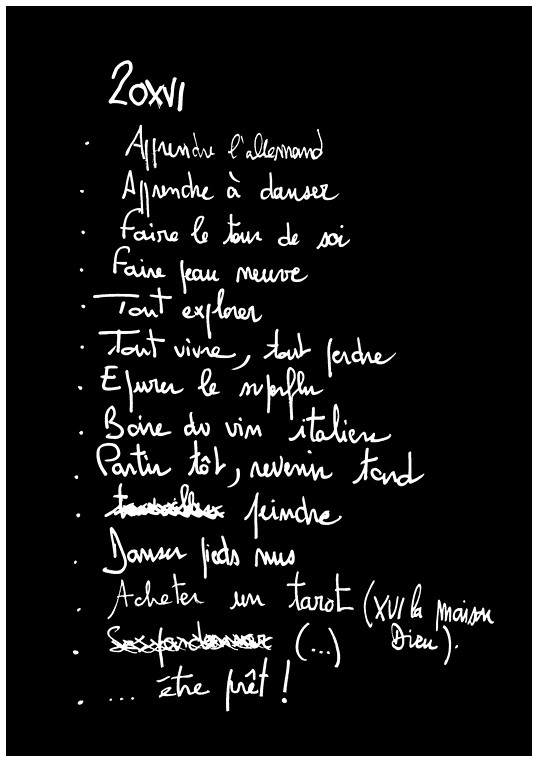 20XVI
· Apprendre l'allemand
· Apprendre à danser
· Faire le tour de soi
· Faire peau neuve
· Tout explorer
· Tout vivre, tout perdre
· Epurer le superflu
· Boire du vin italien
· Partir tôt, revenir tard
· travailler peindre
· Danser pieds nus
· Acheter un tarot (XVI la maison
Dieu).
· (...)
· ... être prêt !